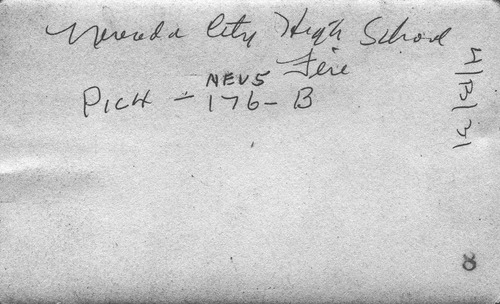 Nevada City High School
Fire
NEUS
PICH - 176-B
4/13/31
8